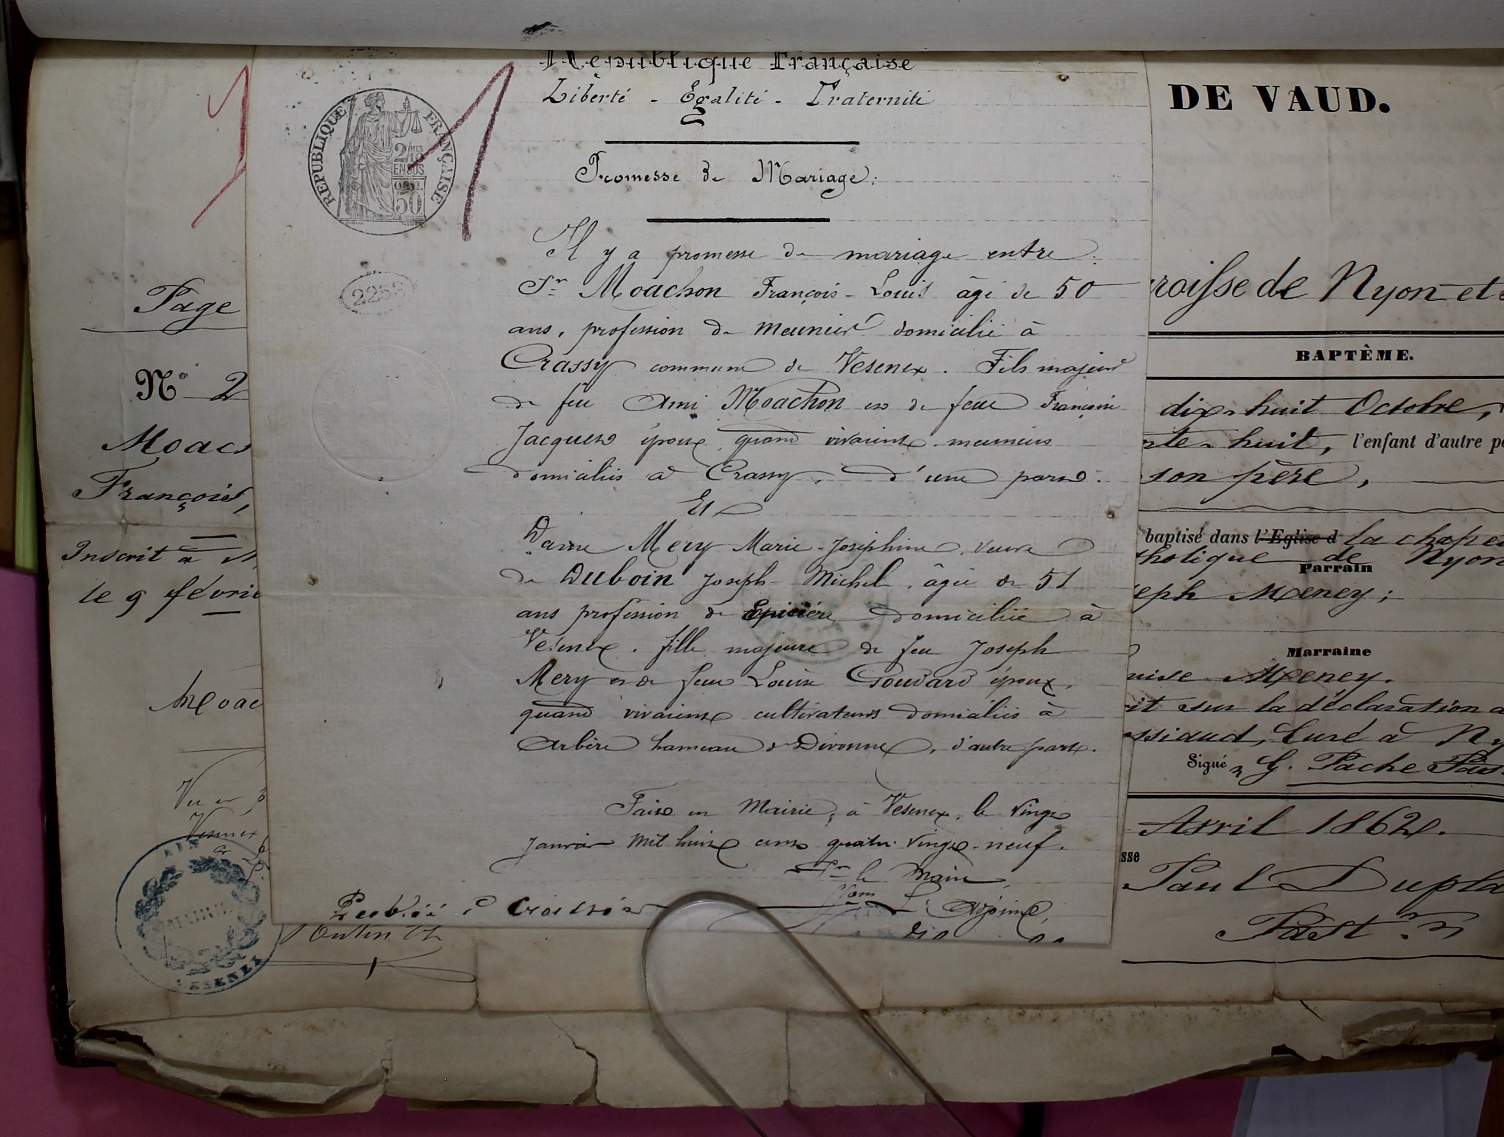 République Française
Liberté - Egalité - Fraternité
REPUBLIQUE FRANÇAISE
Promesse de Mariage.
Il y a promesse de mariage entre
Sr Moachon François-Louis âgé de 50
ans, profession de meunier domicilié à
Crassy commune de Vesenex. Fils majeur
de feu Ami Moachon et de feue Françoise
Jacques époux quand vivaient meuniers
domiciliés à Crassy, d'une part.
Et
Dame Mery Marie-Joséphine, veuve
de Duboin Joseph-Michel, âgée de 51
ans profession de Epicière domiciliée à
Vesenex. fille majeure de feu Joseph
Mery et de feue Louise Goudard époux,
quand vivaient cultivateurs domiciliés à
Arbère hameau de Divonne, d'autre part.
Fait en Mairie, à Vesenex, le vingt
janvier mil huit cent quatre vingt-neuf.
Pr le Maire
L'Adjoint,
Page
No 2
Moac
François,
Inscrit à
le 9 févrie
Moac
Vu
Vesenex
DE VAUD.
roisse de Nyon et
BAPTÊME.
dix-huit Octobre,
te-huit, l'enfant d'autre p
son père,
baptisé dans l'Eglise d la chape
tholique de Nyon
Parrain
eph Meney;
Marraine
uise Meney.
it sur la déclaration
ssiaud, Curé à Ny
Signé G. Pache Past
Avril 1862.
sse
Paul Dupla
Past.r